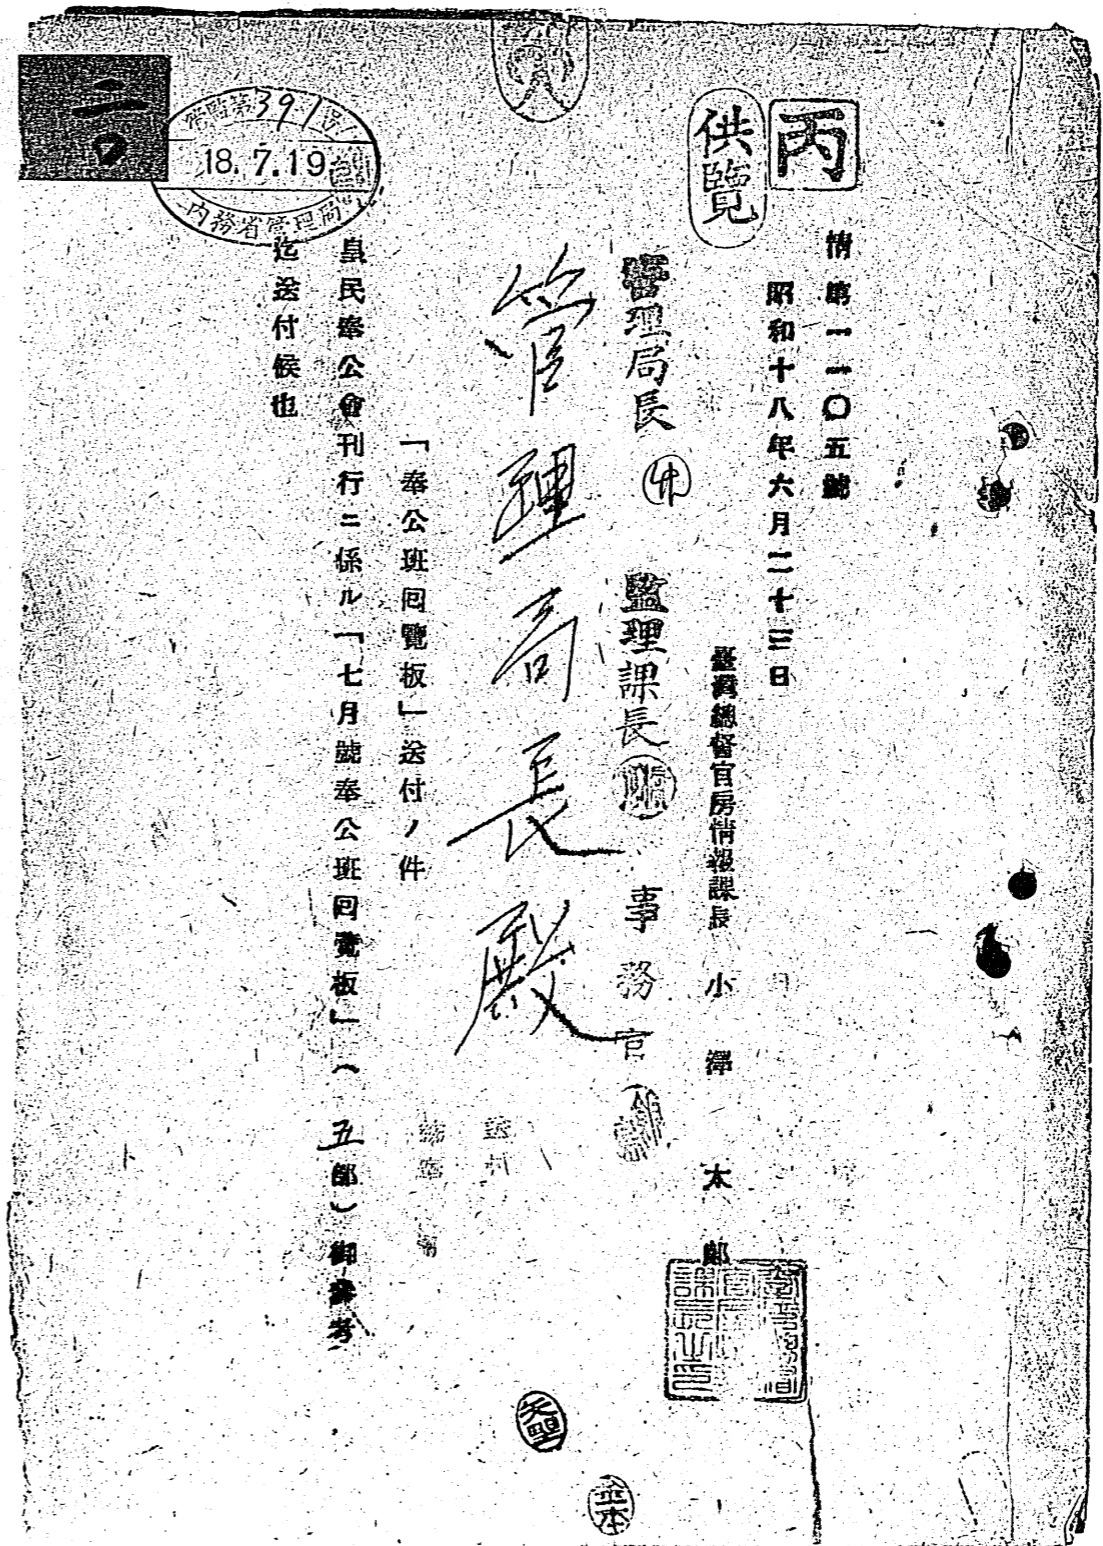 丙
供覽
情第一一〇五號
昭和十八年六月二十三日
臺灣總督官房情報課長 小澤太郎
管理局長
監理課長
事務官
管理局長殿
「奉公班囘覽板」送付ノ件
皇民奉公會刊行ニ係ル「七月號奉公班囘覽板」(五部)御參考
迄送付候也
第391号
18.7.19
內務省管理局
二〇